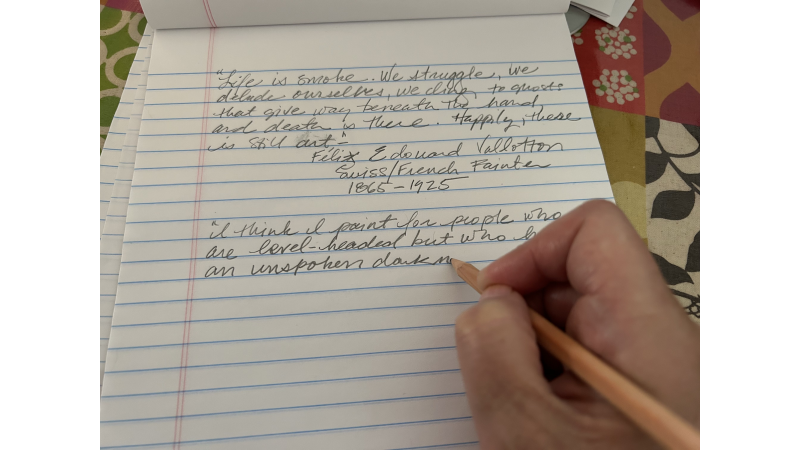 "Life is smoke. We struggle, we
delude ourselves, we cling to ghosts
that give way beneath the hand,
and death is there. Happily, there
is still art."
Félix Edouard Vallotton
Swiss/French Painter
1865-1925
"I think I paint for people who
are level-headed but who h
an unspoken dark n